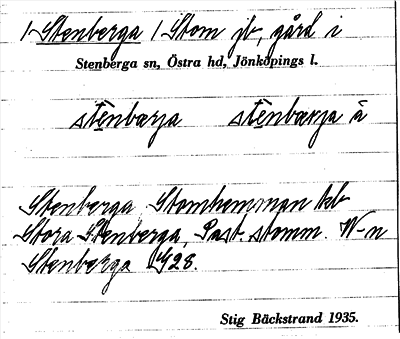 1 Stenberga / Stom jb, gård i
Stenberga sn, Östra hd, Jönköpings l.
stenbærja stenbærja å
Stenberga Stomhemman kb
Stora Stenberga, Past. stomm. W-n
Stenberga G28.
Stig Bäckstrand 1935.